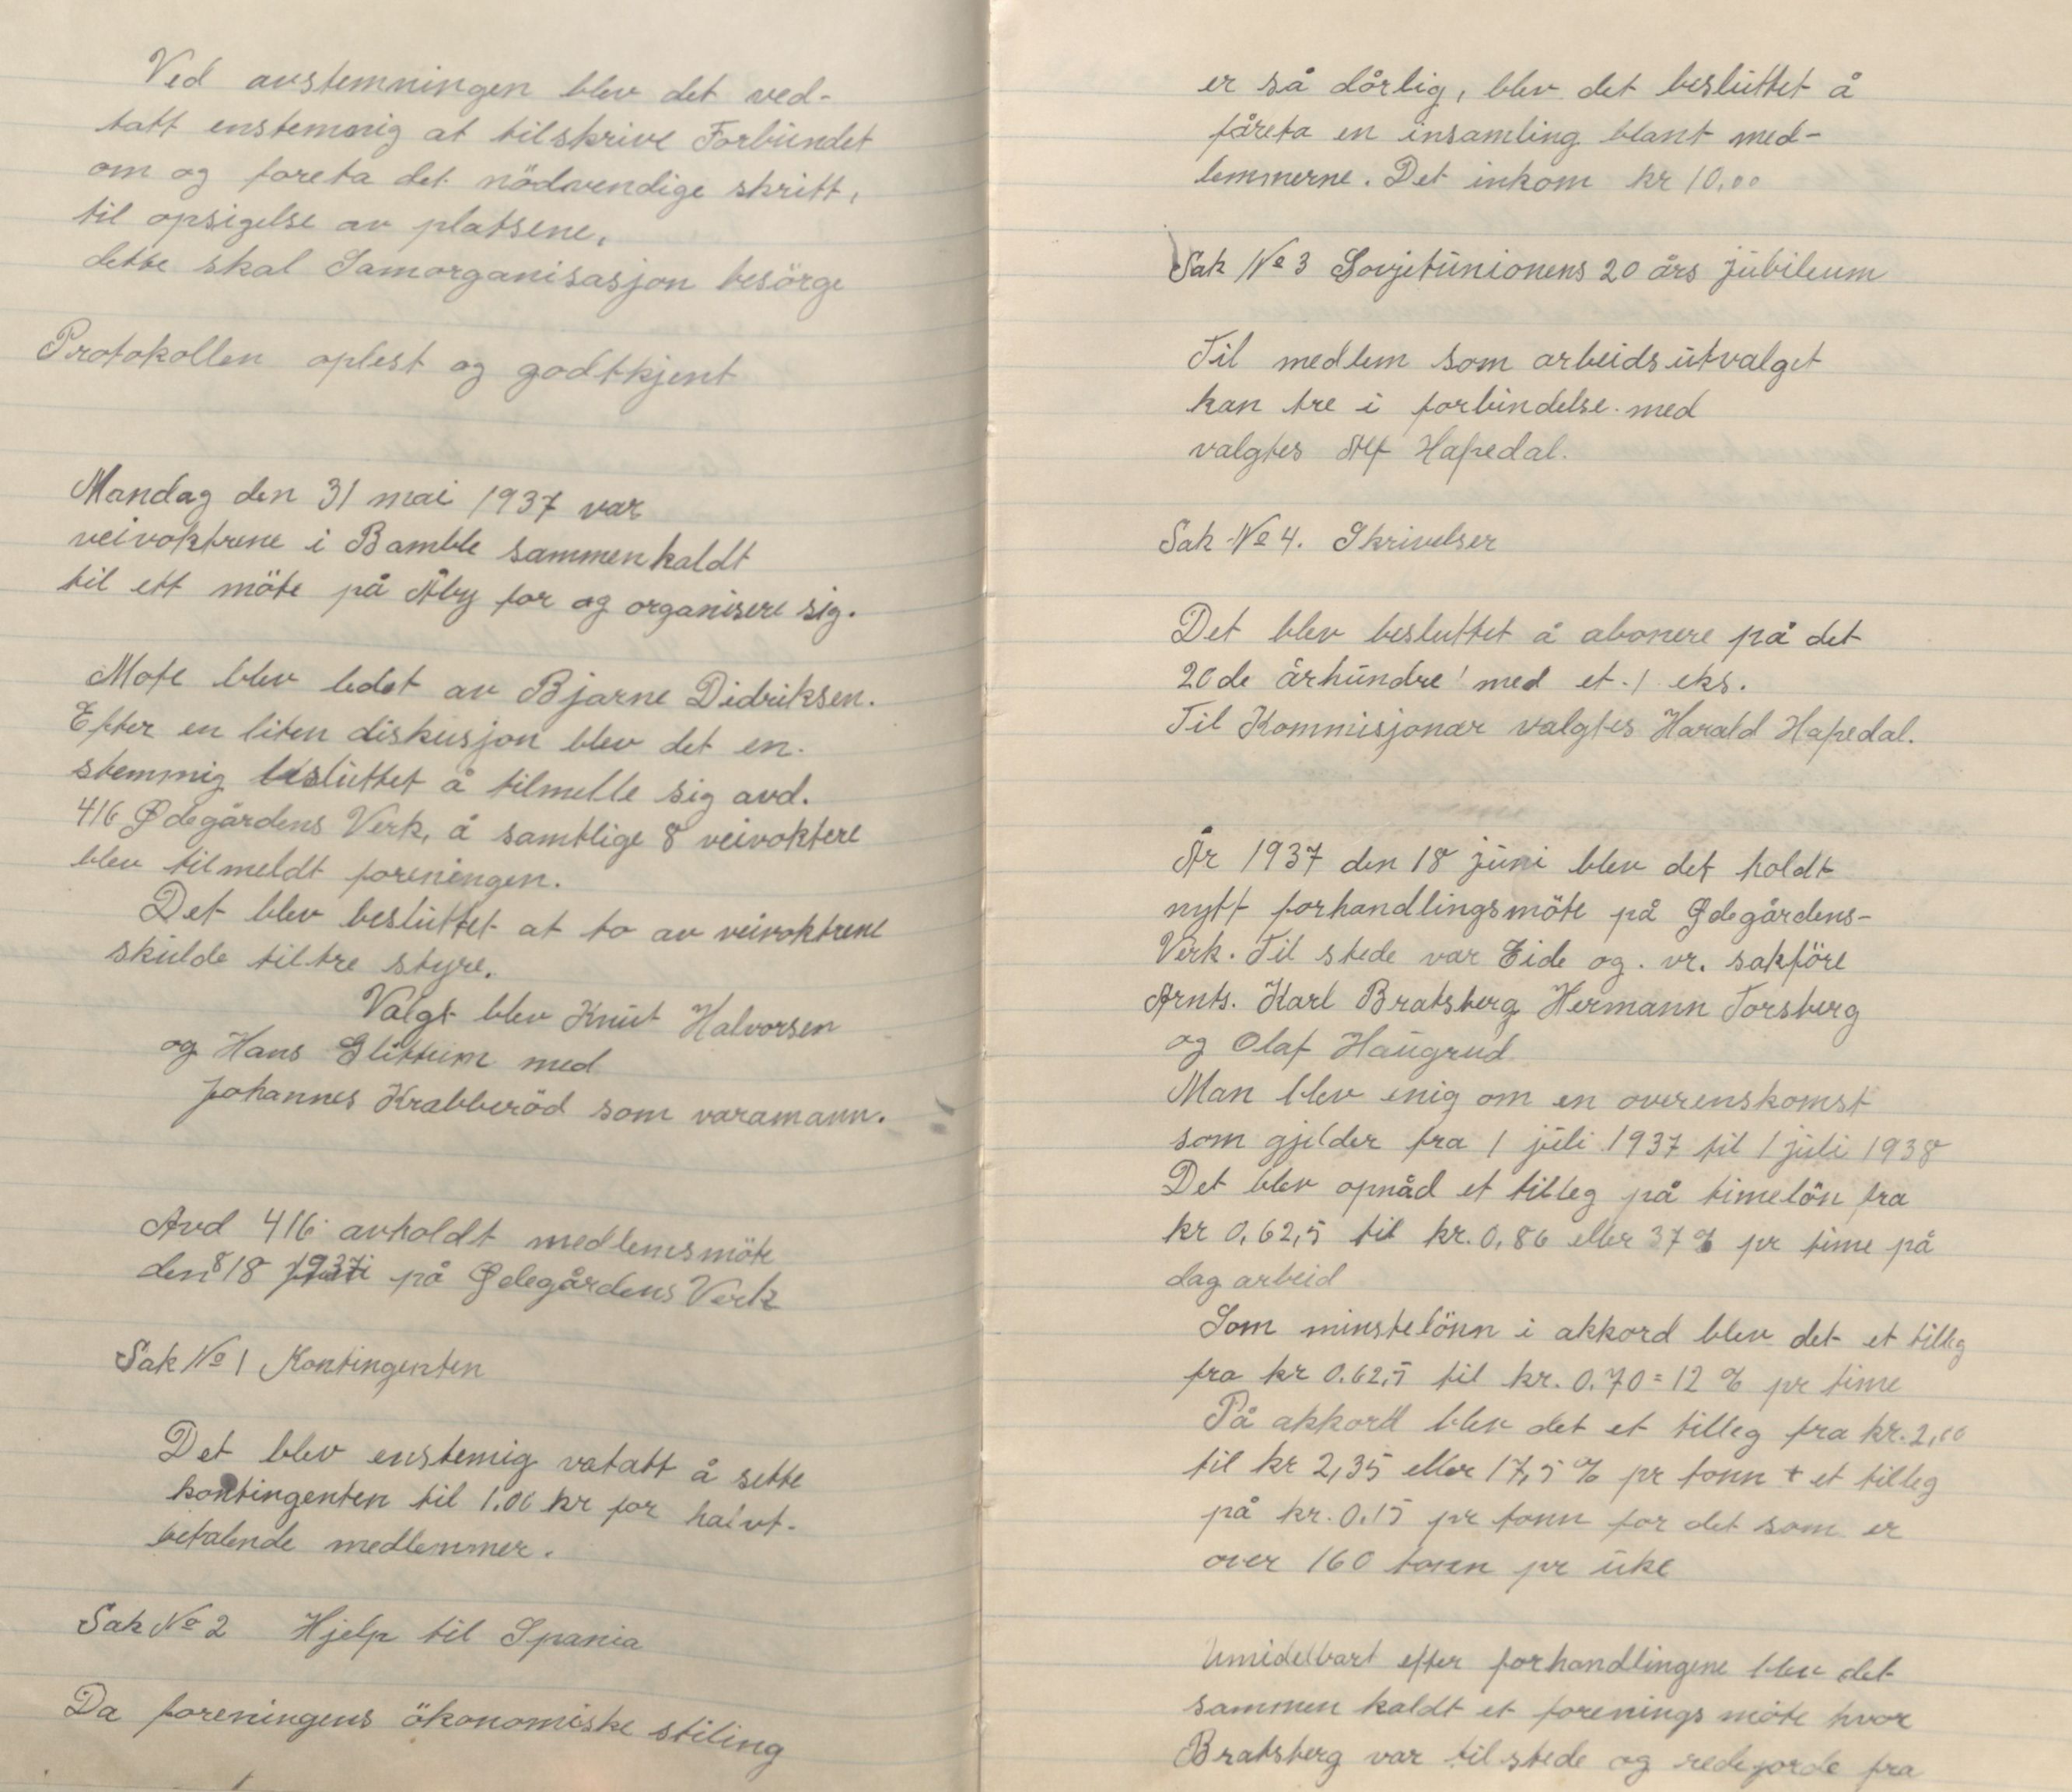 Ved avstemningen blev det ved-
tatt enstemmig at tilskrive Forbundet
om og foreta det nödvendige skritt,
til opsigelse av platsene,
dette skal Samorganisasjon besörge
Protokollen oplest og godtkjent
Mandag den 31 mai 1937 var
veivoktrene i Bamble sammenkaldt
til ett möte på Åby for og organisere sig.
Möte blev ledet av Bjarne Didriksen.
Efter en liten diskusjon blev det en-
stemmig besluttet å tilmelle sig avd.
416 Ødegårdens Verk, å samtlige 8 veivoktere
blev tilmeldt foreningen.
Det blev besluttet at to av veivoktrene
skulde tiltre styre.
Valgt blev Knut Halvorsen
og Hans Glittum med
Johannes Krabberöd som varamann.
Avd 416 avholdt medlemsmöte
den 8/8 1937 på Ødegårdens Verk
Sak No 1 Kontingenten
Det blev enstemig vatatt å sette
kontingenten til 1.00 kr for halvt-
betalende medlemmer.
Sak No 2 Hjelp til Spania
Da foreningens ökonomiske stiling
er så dårlig, blev det besluttet å
fåreta en insamling blant med-
lemmerne. Det inkom kr 10,00
Sak No 3 Sovjetunionens 20 års jubileum
Til medlem som arbeidsutvalget
kan tre i forbindelse med
valgtes Alf Hafredal.
Sak No 4. Skrivelser
Det blev besluttet å abonere på det
20de århundre' med et 1 eks.
Til Kommisjonær valgtes Harald Hafredal.
År 1937 den 18 juni blev det holdt
nytt forhandlingsmöte på Ødegårdens-
Verk. Til stede var Eide og vr. sakföre
Arnts. Karl Bratsberg Hermann Torsberg
og Olaf Haugrud
Man blev enig om en overenskomst
som gjelder fra 1 juli 1937 til 1 juli 1938
Det blev opnåd et tilleg på timelön fra
kr 0,62,5 til kr. 0,86 eller 37 % pr time på
dag arbeid
Som minstelönn i akkord blev det et tilleg
fra kr 0.62,5 til kr. 0.70 = 12 % pr time
På akkord blev det et tilleg fra kr. 2,00
til kr 2,35 eller 17,5 % pr tonn + et tilleg
på kr. 0.15 pr tonn for det som er
over 160 tonn pr uke
Umidelbart efter forhandlingene blev det
sammen kaldt et forenings möte hvor
Bratsberg var tilstede og redegjorde fra